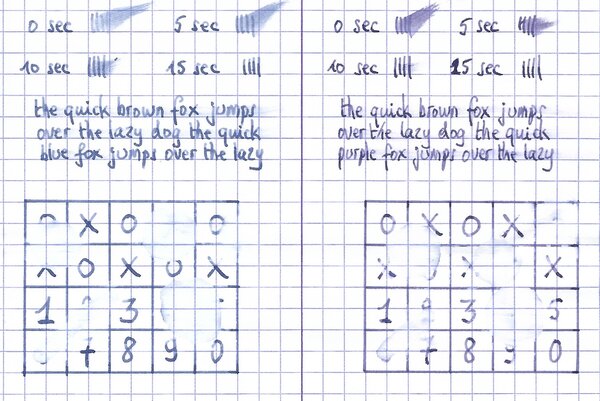 0 sec 5 sec
10 sec 15 sec
the quick brown fox jumps
over the lazy dog the quick
blue fox jumps over the lazy
X O O
O X O X
1 3
7 8 9 0
0 sec 5 sec
10 sec 15 sec
the quick brown fox jumps
over the lazy dog the quick
purple fox jumps over the lazy
O X O X
X X X
1 3 5
7 8 9 0